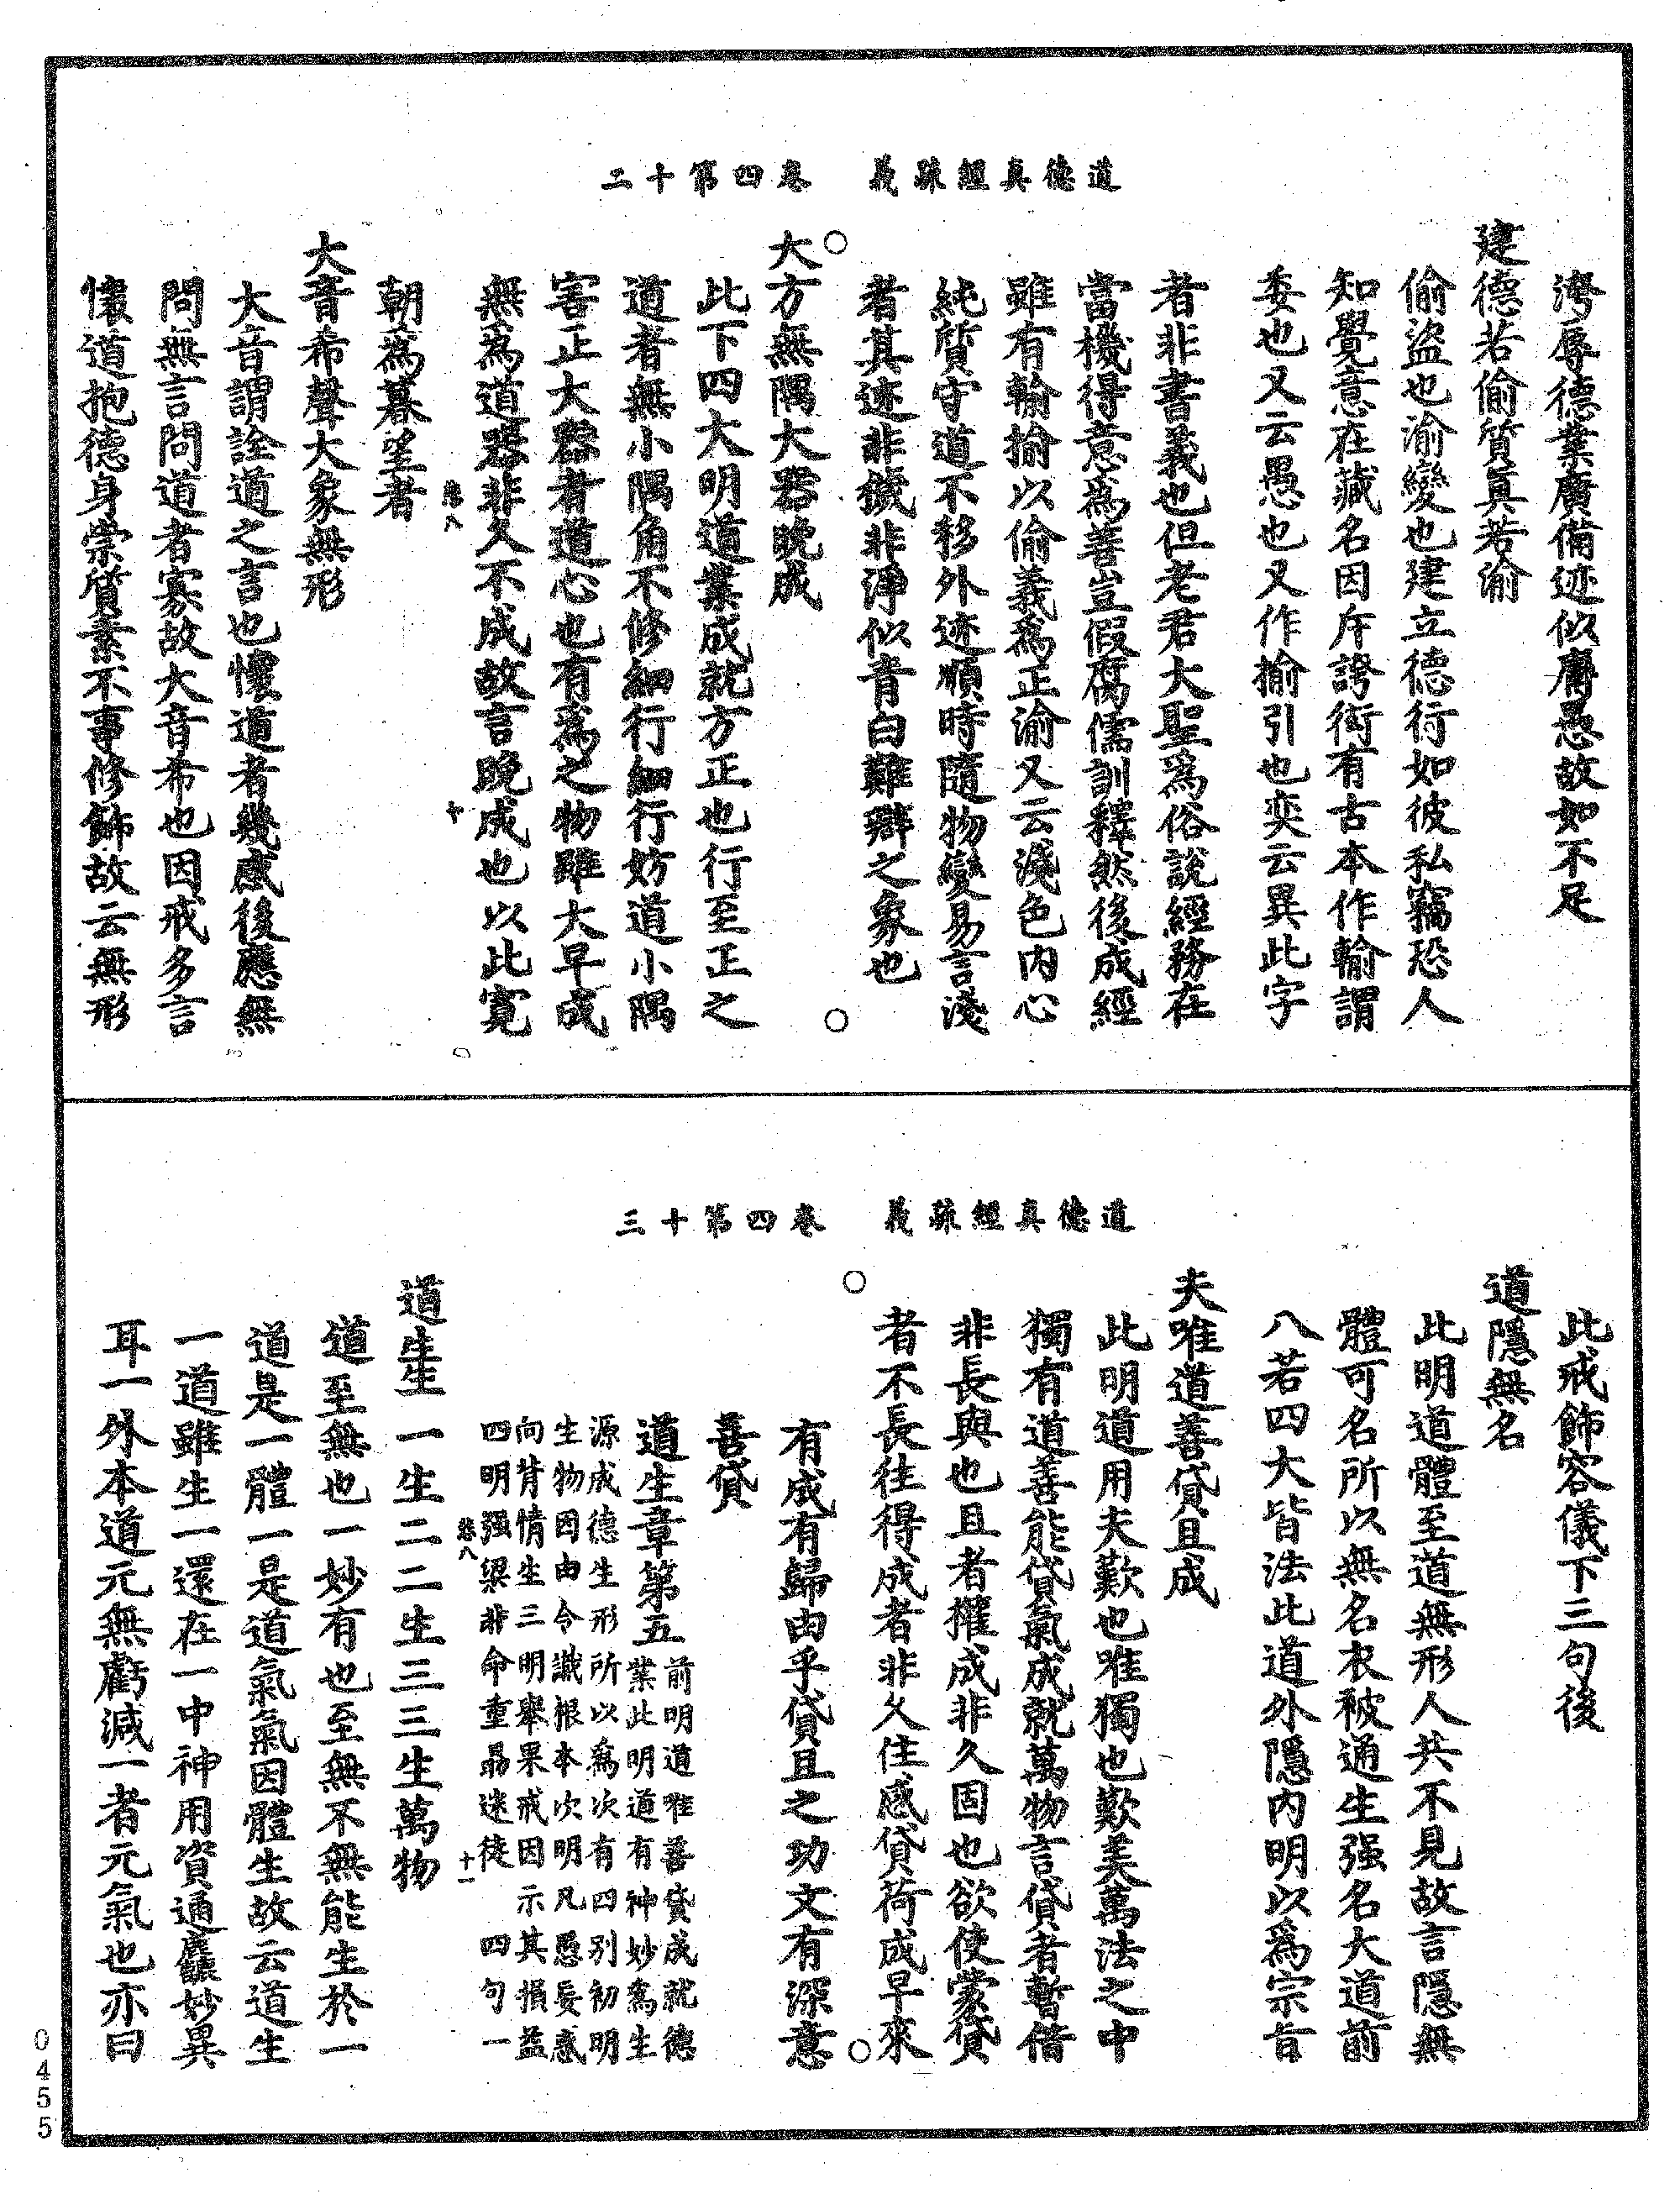 道德真經疏義　卷四第十二
湾辱德業廣備迹似庸愚故如不足
建德若偷質真若渝
偷盜也渝變也建立德行如彼私竊恐人
知覺意在藏名因斥誇衒有古本作輸謂
委也又云愚也又作揄引也奕云異此字
者非書義也但老君大聖爲俗說經務在
當機得意爲善豈假腐儒訓釋然後成經
雖有輸揄以偷義爲正渝又云淺色內心
純質守道不移外迹順時隨物變易言淺
者其迹非穢非淨似青白難辯之象也
大方無隅大器晚成
此下四大明道業成就方正也行至正之
道者無小隅角不修細行細行妨道小隅
害正大器者道心也有爲之物雖大早成
無爲道器非久不成故言晚成也以此寛
恙八　十
朝爲暮望者
大音希聲大象無形
大音謂詮道之言也懷道者幾感後應無
問無言問道者寡故大音希也因戒多言
懷道抱德身崇質素不事修飾故云無形
道德真經疏義　卷四第十三
此戒飾容儀下三句後
道隱無名
此明道體至道無形人共不見故言隱無
體可名所以無名衣被通生强名大道前
八若四大皆法此道外隱內明以爲宗旨
夫唯道善貸且成
此明道用夫歎也唯獨也歎美萬法之中
獨有道善能貸氣成就萬物言貸者暫借
非長與也且者㩁成非久固也欲使蒙貸
者不長往得成者非久住感貸荷成早來
有成有歸由乎貸且之功文有深意
善貸
道生章第五前明道唯善貸成就德
業此明道有神妙爲生
源成德生形所以爲次有四别初明
生物因由令識根本次明凡愚妄惑
向背情生三明舉果戒因示其損益
四明强梁非命重勗迷徒　四句一
恙八　十一
道生一一生二二生三三生萬物
道至無也一妙有也至無不無能生於一
道是一體一是道氣氣因體生故云道生
一道雖生一還在一中神用資通麤妙異
耳一外本道元無虧減一者元氣也亦曰
0455